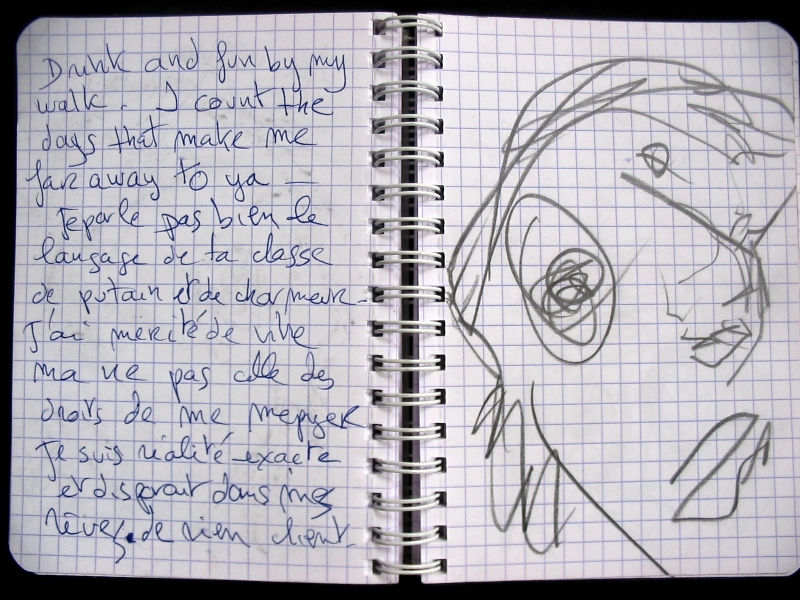 Drunk and fun by my
walk. I count the
days that make me
far away to ya —
Je parle pas bien le
langage de ta classe
de putain et de charmeur -
J'ai mérité de vivre
ma vie pas celle des
de me
Je suis réalité exacte
et disparait dans mes
rêves de rien client